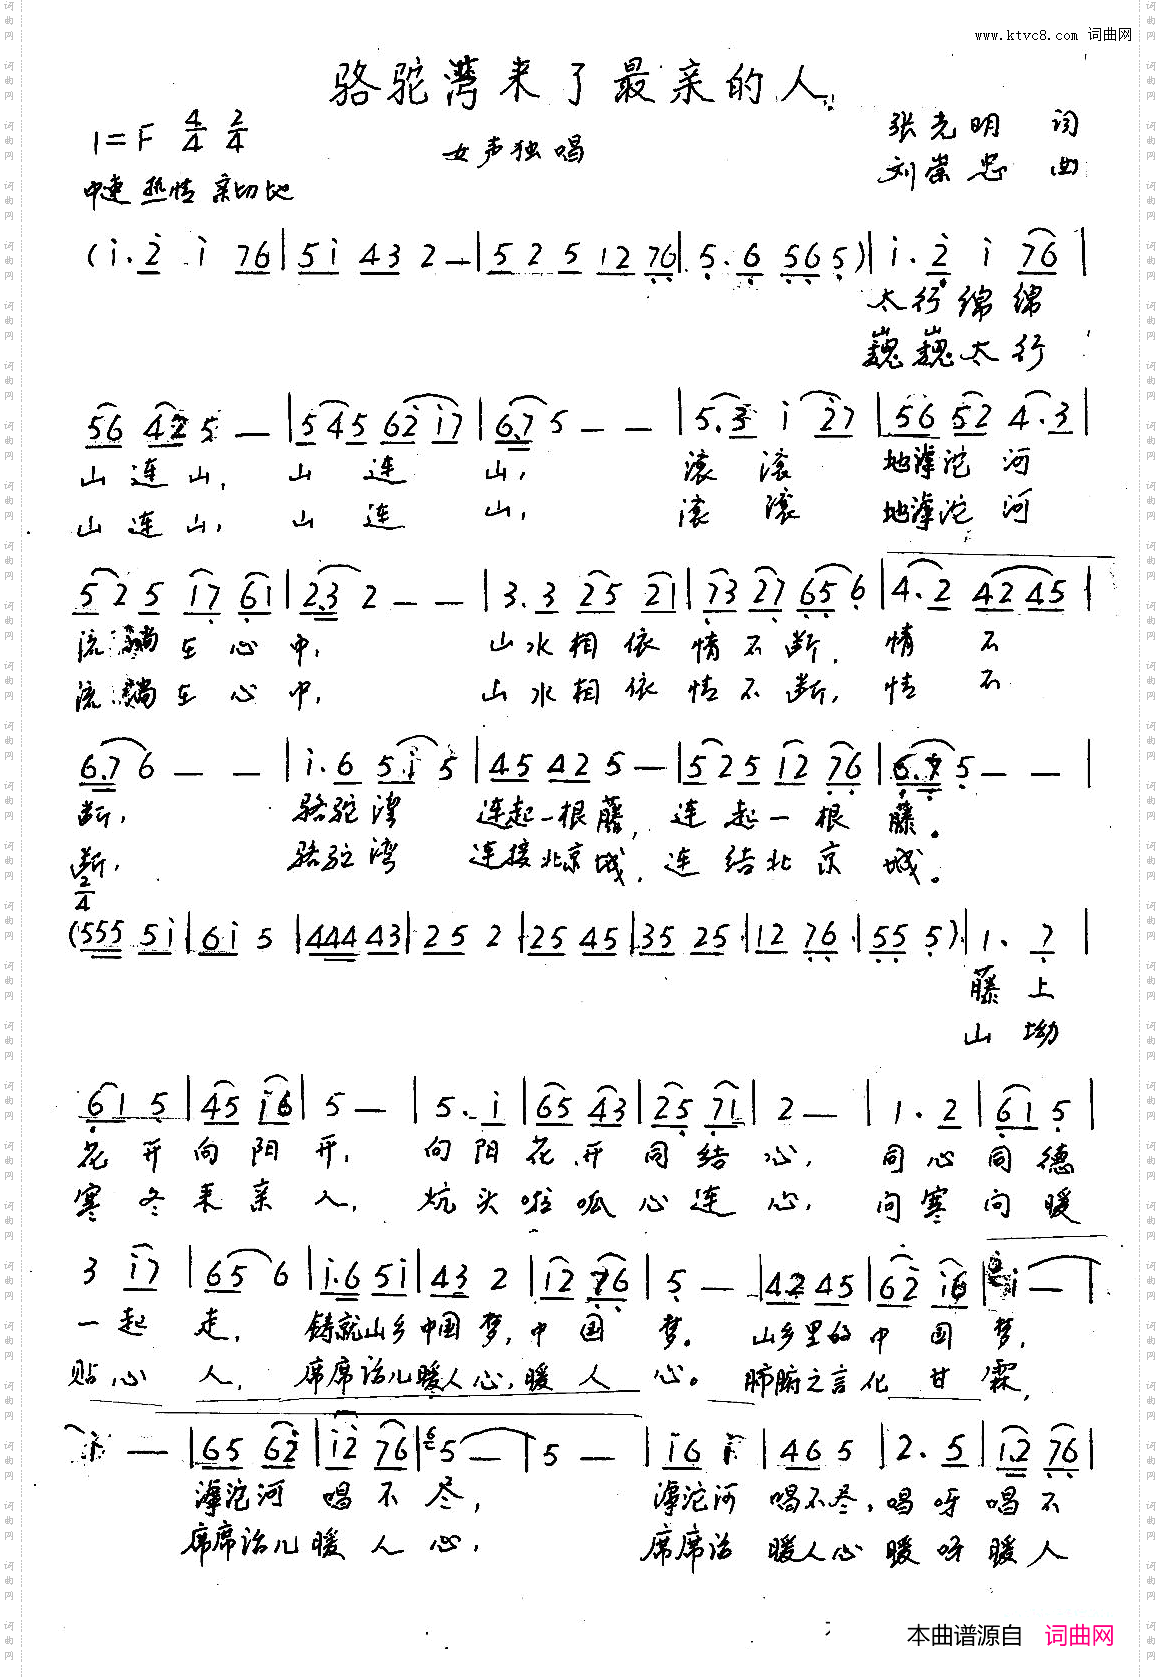 www.ktvc8.com 词曲网
骆驼湾来了最亲的人
1=F 4/4 2/4
女声独唱
张光明 词
刘崇忠 曲
中速 热情 亲切地
(i.2 i 76|5i 43 2—|5 2 5 12 76|5.6 565)|i.2 i 76|
太行绵绵
巍巍太行
56 42 5 —|545 62i7|6.7 5 — —|5.3 i 27|56 52 4.3|
山连山, 山连山, 滚滚地滹沱河
山连山, 山连山, 滚滚地滹沱河
525 17 61|2.3 2 — —|3.3 25 21|73 27 65 6|4.2 4245|
流淌在心中, 山水相依情不断, 情不
流淌在心中, 山水相依情不断, 情不
6.7 6 — —|i.6 5.i 5|45 42 5 —|525 12 76|6.7 5 — —|
断, 骆驼湾 连起一根藤, 连起一根藤。
断, 骆驼湾 连接北京城, 连结北京城。
2/4
(555 5i|6i 5|444 43|25 2|25 45|35 25|12 76|55 5)|1. 7|
藤上
山坳
61 5|45 i6|5 —|5. i|65 43|25 71|2 —|1. 2|61 5|
花开向阳开, 向阳花开同结心, 同心同德
寒冬来亲人, 炕头啦呱心连心, 问寒问暖
3 i7|65 6|i.6 5i|43 2|12 76|5 —|42 45|62 i6|i —|
一起走, 铸就山乡中国梦,中国梦。山乡里的中国梦,
贴心人, 席席话儿暖人心,暖人心。肺腑之言化甘霖,
i —|65 62|i2 76|5 —|5 —|i6 i|46 5|2. 5|12 76|
滹沱河唱不尽, 滹沱河唱不尽,唱呀唱不
席席话儿暖人心, 席席话暖人心暖呀暖人
本曲谱源自 词曲网